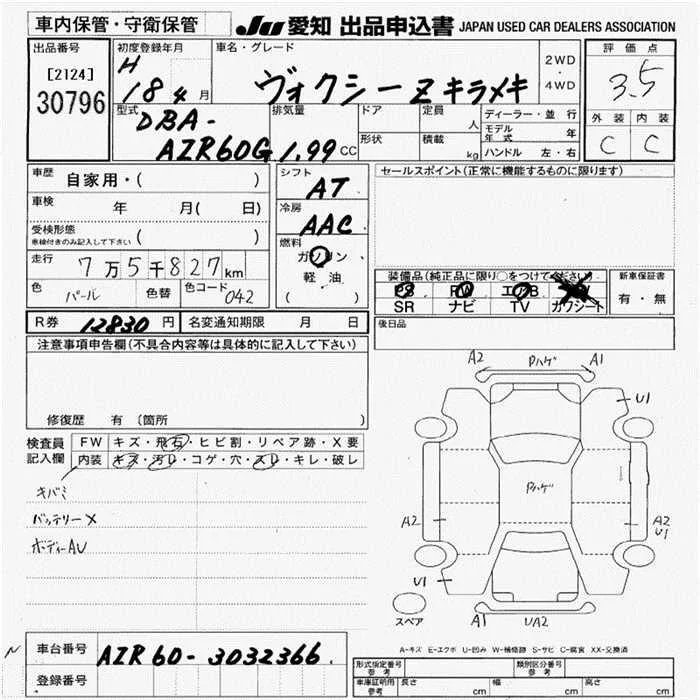 車内保管・守衛保管
JU 愛知 出品申込書 JAPAN USED CAR DEALERS ASSOCIATION
出品番号
[2124]
30796
初度登録年月
H
18 4 月
車名・グレード
ヴォクシーZキラメキ
2WD
・
4WD
評価点
3.5
外装 内装
C C
型式
DBA-
AZR60G
排気量
1.99 CC
ドア
形状
定員
人
積載
kg
ディーラー・並行
モデル年式 年
ハンドル 左・右
車歴 自家用・( )
車検 年 月( 日)
受検形態
車検付きのみ記入して下さい ( )
走行 7万5千827km
色 パール 色替 色コード 042
シフト
AT
冷房
AAC
燃料
ガソリン
軽油
( )
セールスポイント(正常に機能するものに限ります)
装備品(純正品に限り○をつけてください)
PS PW エアB AW
SR ナビ TV カワシート
新車保証書
有・無
後日品
R券 12830 円 名変通知期限 月 日
注意事項申告欄(不具合内容等は具体的に記入して下さい)
修復歴 有 〔箇所 〕
検査員
記入欄
FW キズ・飛石・ヒビ割・リペア跡・X要
内装 キズ・汚レ・コゲ・穴・スレ・キレ・破レ
キバミ
バッテリーX
ボディーAU
A2 Pハゲ A1
U1
Pハゲ
A2
A2
U1
U1
スペア
A1 UA2
A-キズ E-エクボ U-凹み W-補修跡 S-サビ C-腐食 XX-交換済
N
車台番号 AZR60-3032366
登録番号
形式指定番号
参考
類別区分番号
参考
車庫証明用
参考
長さ cm 幅 cm 高さ cm